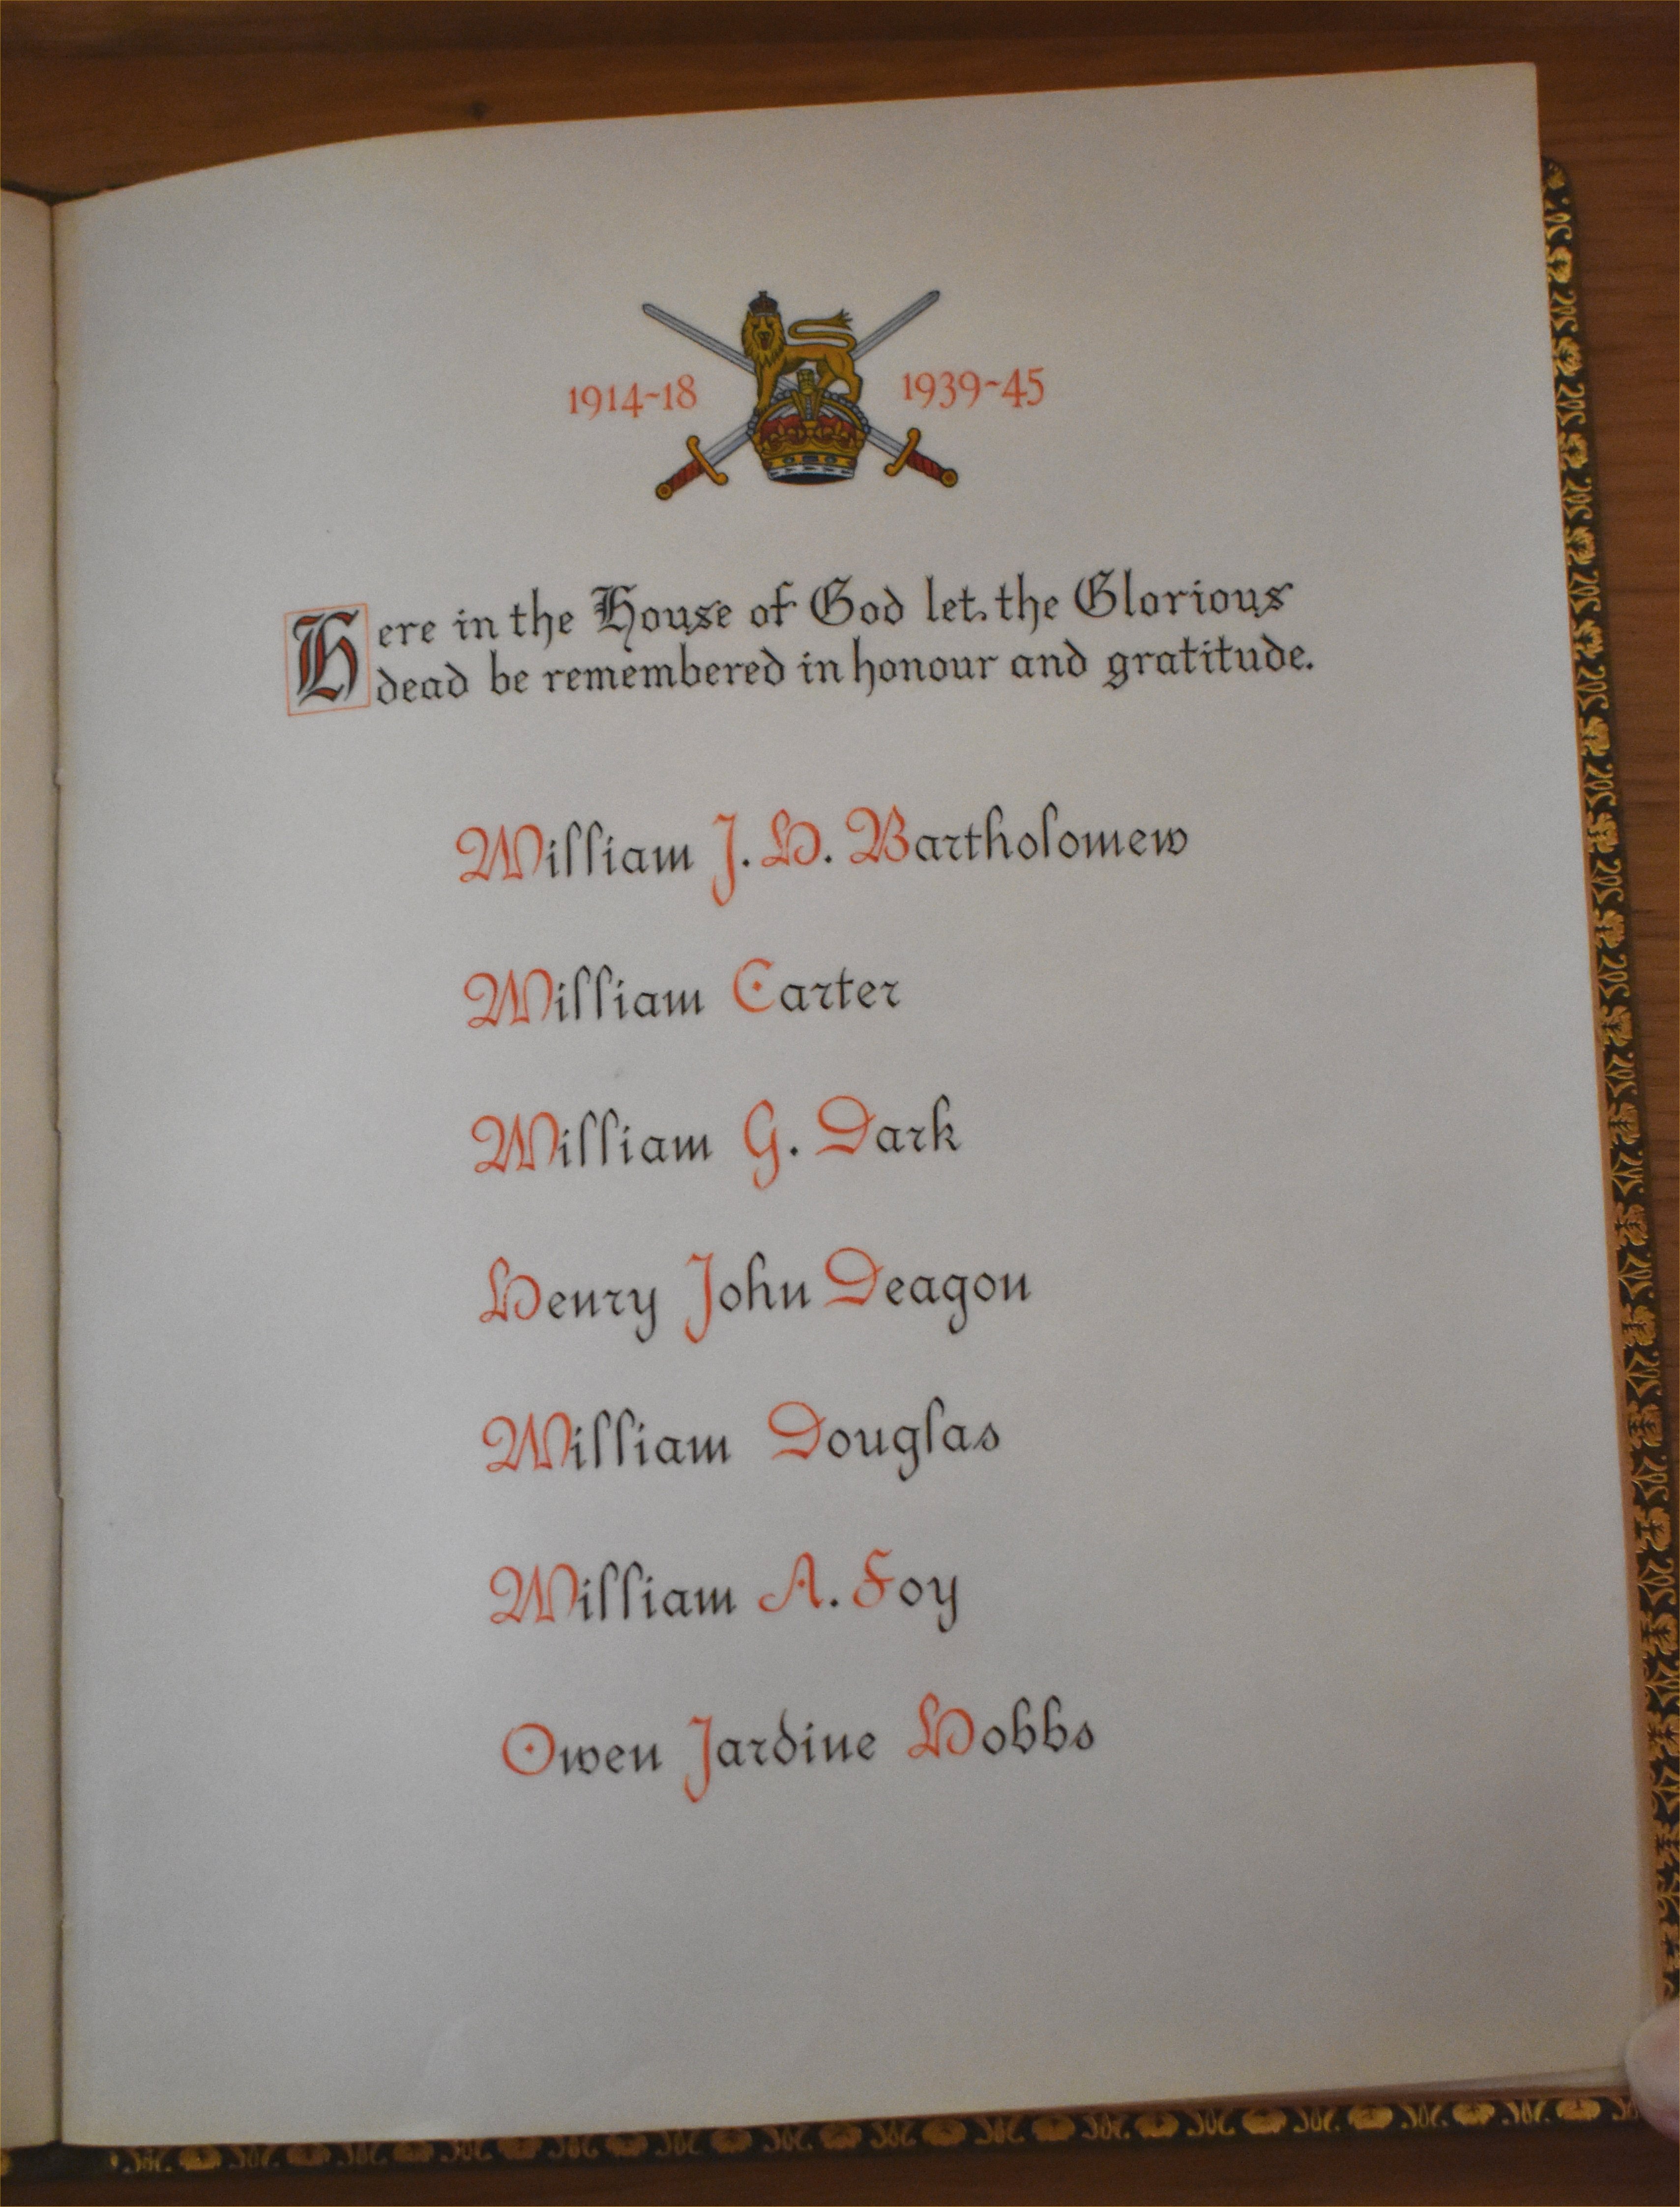 1914-18 1939-45
Here in the House of God let the Glorious
dead be remembered in honour and gratitude.
William J. H. Bartholomew
William Carter
William G. Dark
Henry John Deagon
William Douglas
William A. Foy
Owen Jardine Hobbs